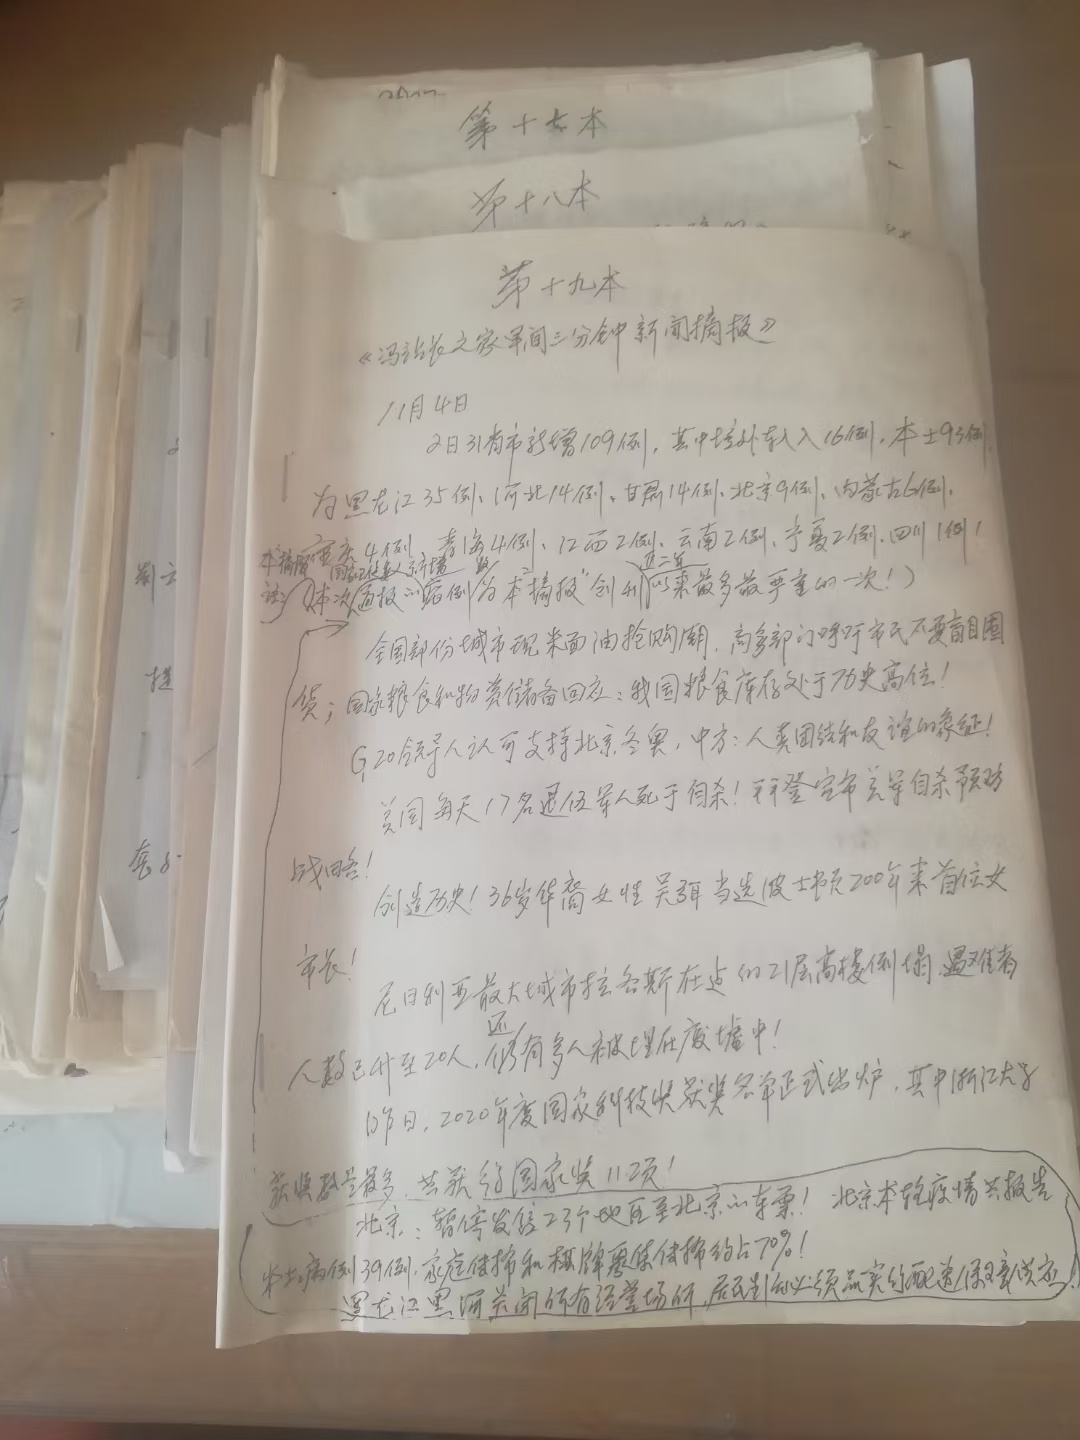 第十七本
第十八本
第十九本
《冯站长之家军间三分钟新闻摘报》
11月4日
2日31省市新增109例，其中境外输入16例，本土93例
为黑龙江35例、河北14例、甘肃14例、北京9例、内蒙古6例、
重庆4例、青海4例、江西2例、云南2例、宁夏2例、四川1例！
本摘报
国家卫健委 新增 数 近二年
注：（本次通报的病例为本"摘报"创刊以来最多最严重的一次！）
全国部份城市现米面油抢购潮，商务部门呼吁市民不要盲目囤
货；国家粮食和物资储备回应：我国粮食库存处于历史高位！
G20领导人认可支持北京冬奥，中方：人类团结和友谊的象征！
美国每天17名退伍军人死于自杀！拜登宣布美军自杀预防
战略！
创造历史！36岁华裔女性吴弭当选波士顿200年来首位女
市长！
尼日利亚最大城市拉各斯在建的21层高楼倒塌，遇难者
还
人数已升至20人，仍有多人被埋在废墟中！
昨日，2020年度国家科技奖获奖名单正式出炉，其中浙江大学
获奖数量最多，共获得国家奖112项！
北京：暂停发往23个地区至北京的车票！北京本轮疫情共报告
本土病例39例，家庭传播和棋牌聚集传播约占70%！
黑龙江黑河关闭所有经营场所，居民生活必须品实行配送保障供应！
刘云
提
套